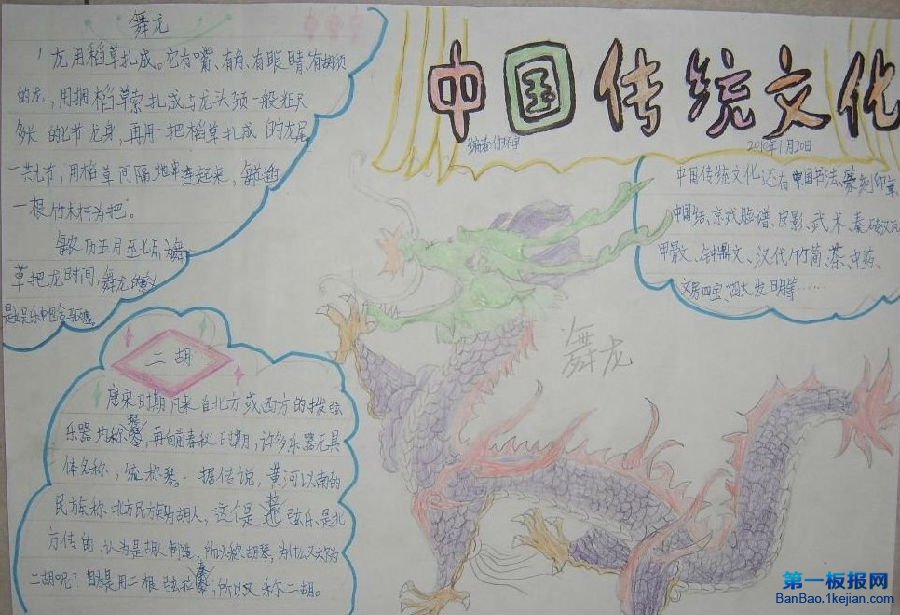 中国传统文化
2010年1月20日
舞龙
龙用稻草扎成。它有嘴、有角、有眼睛、有胡须
的龙,用捆稻草索扎成与龙头颈一般粗尺
多长的七节龙身,再用一把稻草扎成的龙尾
一共七节,用稻草间隔地牵连起来,
一根竹木杆为把。
农历五月至七月
草把龙时间,舞龙
中国传统文化还有中国书法、篆刻印章、
中国结、京戏脸谱、皮影、武术、秦砖汉瓦
甲骨文、钟鼎文、汉代竹简、茶、中药、
文房四宝、四大发明等……
舞龙
二胡
唐宋时期凡来自北方或西方的拨弦
乐器均称琴,再向前春秋时期,许多乐器无具
体名称,统称琴。据传说,黄河以南的
民族称北方民族为胡人,这个是 弦乐是北
方传 认为是胡人制造,所以称胡琴,为什么又
二胡呢?因为是用二根弦 ,所以又称二胡。
第一板报网
BanBao.1kejian.com